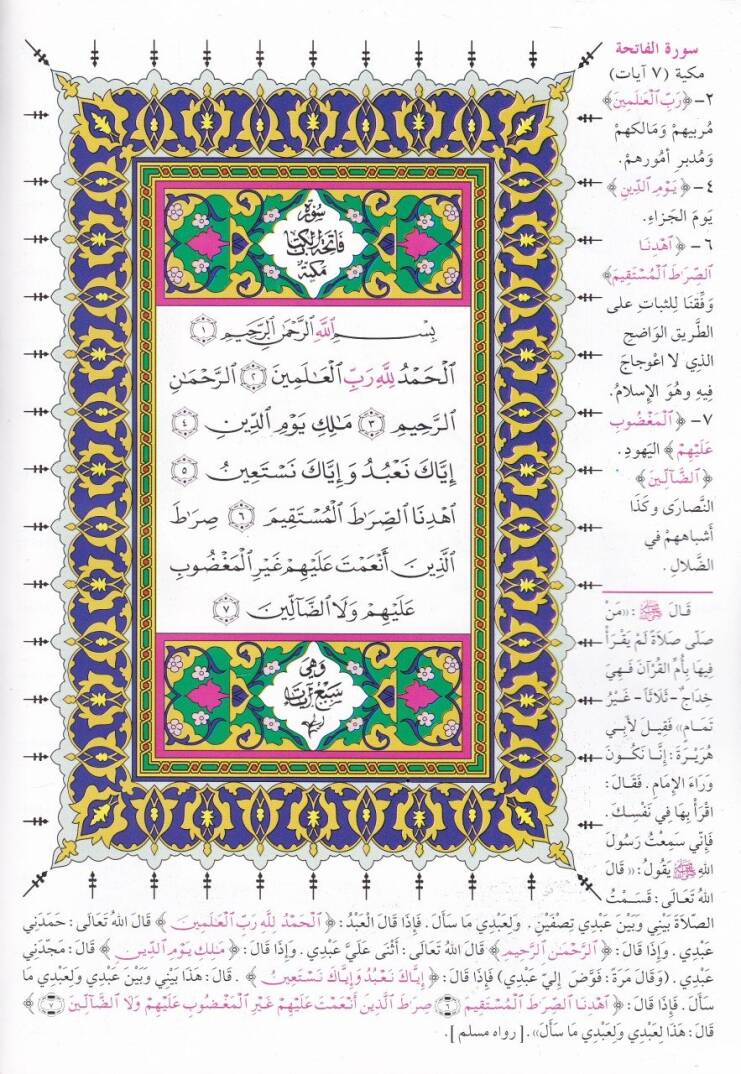 سُورَةُ
فَاتِحَةِ الْكِتَابِ
مَكِّيَّة
بِسْمِ ٱللَّهِ ٱلرَّحْمَٰنِ ٱلرَّحِيمِ ١
ٱلْحَمْدُ لِلَّهِ رَبِّ ٱلْعَٰلَمِينَ ٢ ٱلرَّحْمَٰنِ
ٱلرَّحِيمِ ٣ مَٰلِكِ يَوْمِ ٱلدِّينِ ٤
إِيَّاكَ نَعْبُدُ وَإِيَّاكَ نَسْتَعِينُ ٥
ٱهْدِنَا ٱلصِّرَٰطَ ٱلْمُسْتَقِيمَ ٦ صِرَٰطَ
ٱلَّذِينَ أَنْعَمْتَ عَلَيْهِمْ غَيْرِ ٱلْمَغْضُوبِ
عَلَيْهِمْ وَلَا ٱلضَّآلِّينَ ٧
وَهِيَ
سَبْعُ آيَات
سورة الفاتحة
مكية (٧ آيات)
٢- ﴿رَبِّ ٱلْعَٰلَمِينَ﴾
مُربيهمْ وَمَالكهمْ
وَمُدبر أمُورهمْ.
٤- ﴿يَوْمِ ٱلدِّينِ﴾
يَومَ الجَزاءِ.
٦- ﴿ٱهْدِنَا
ٱلصِّرَٰطَ ٱلْمُسْتَقِيمَ﴾
وَفِّقنَا لِلثباتِ على
الطَّريق الوَاضحِ
الذي لا اعْوجاجَ
فِيهِ وهُوَ الإسلامُ.
٧- ﴿ٱلْمَغْضُوبِ
عَلَيْهِمْ﴾ اليَهودِ.
﴿ٱلضَّآلِّينَ﴾
النَّصارَى وكَذَا
أَشباههمْ في
الضَّلالِ.
قَالَ ﷺ: «مَنْ
صَلَّى صَلاَةً لَمْ يَقْرَأْ
فِيهَا بِأُمِّ القُرْآنَ فَهِيَ
خِدَاجٌ - ثَلاَثاً - غَيْرُ
تَمَامٍ» فَقِيلَ لأَبِي
هُرَيْرَةَ: إِنَّا نَكُونَ
وَرَاءَ الإِمَامِ. فَقَالَ:
اقْرَأْ بِهَا فِي نَفْسِكَ.
فَإِنِّي سَمِعْتُ رَسُولَ
اللهِ ﷺ يَقُولُ: «قَالَ
اللهُ تَعَالَى: قَسَمْتُ
الصَّلاَةَ بَيْنِي وَبَيْنَ عَبْدِي نِصْفَيْنِ. وَلِعَبْدِي مَا سَأَلَ. فَإِذَا قَالَ الْعَبْدُ: ﴿ٱلْحَمْدُ لِلَّهِ رَبِّ ٱلْعَٰلَمِينَ﴾ قَالَ اللهُ تَعَالَى: حَمَدَنِي
عَبْدِي. وَإِذَا قَالَ: ﴿ٱلرَّحْمَٰنِ ٱلرَّحِيمِ﴾ قَالَ اللهُ تَعَالَى: أَثْنَى عَلَيَّ عَبْدِي. وَإِذَا قَالَ: ﴿مَٰلِكِ يَوْمِ ٱلدِّينِ﴾ قَالَ: مَجَّدَنِي
عَبْدِي. (وَقَالَ مَرَةً: فَوَّضَ إِلِيَّ عَبْدِي) فَإِذَا قَالَ: ﴿إِيَّاكَ نَعْبُدُ وَإِيَّاكَ نَسْتَعِينُ﴾. قَالَ: هَذَا بَيْنِي وَبَيْنَ عَبْدِي وَلِعَبْدِي مَا
سَأَلَ. فَإِذَا قَالَ: ﴿ٱهْدِنَا ٱلصِّرَٰطَ ٱلْمُسْتَقِيمَ ٦ صِرَٰطَ ٱلَّذِينَ أَنْعَمْتَ عَلَيْهِمْ غَيْرِ ٱلْمَغْضُوبِ عَلَيْهِمْ وَلَا ٱلضَّآلِّينَ ٧﴾
قَالَ: هَذَا لِعَبْدِي وَلِعَبْدِي مَا سَأَلَ». [رواه مسلم].